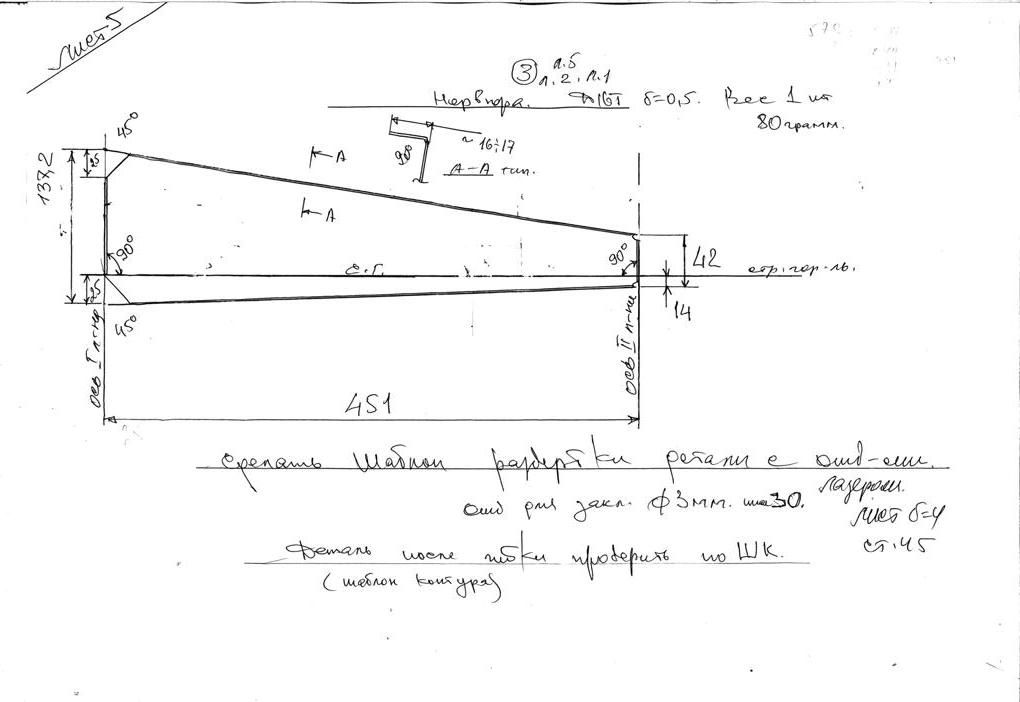 Лист 5
③ л.5
л.2. л.1
Нервюра. Д16Т δ=0,5. Вес 1 шт
80 грамм.
45°
137,2
25
А
А
90°
~16÷17
А–А тип.
90°
С.Г.
90°
42
стр. гор-ль.
14
25
45°
ось I л-на
ось II л-на
451
Сделать шаблон развёртки детали с отв-ями.
лазером.
отв для закл. Ф3мм. шаг 30.
лист δ=4
ст.45
Деталь после гибки проверить по ШК.
(шаблон контура)